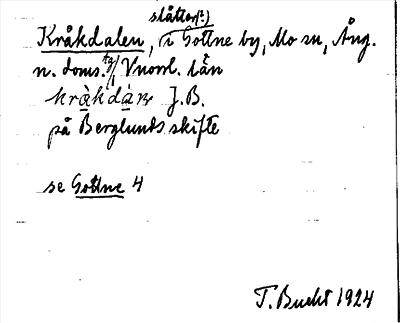 slåtter(?)
Kråkdalen, i Gottne by, Mo sn, Ång.
n. doms. tg / Vnorrl. län
J. B.
på Berglunds skifte
se Gottne 4
T. Bucht 1924